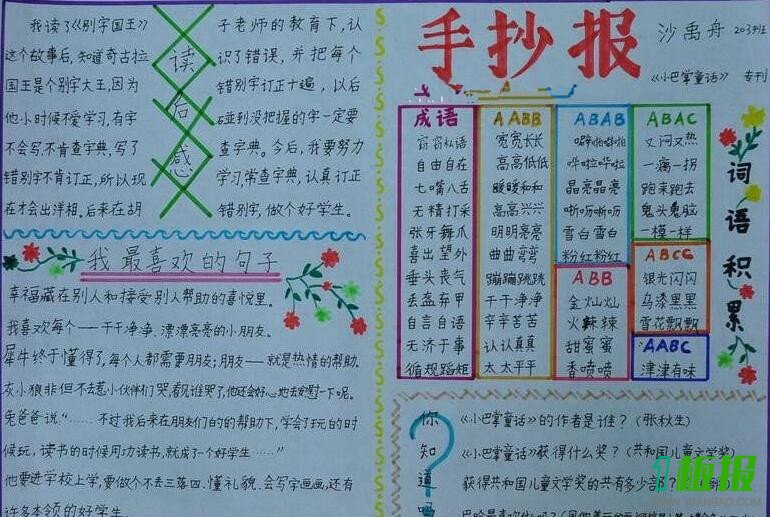 我读了《别字国王》
这个故事后，知道奇古拉
国王是个别字大王，因为
他小时候不爱学习，有字
不会写，不肯查字典，写了
错别字不肯订正，所以现
在才会出洋相。后来在胡
读后感
子老师的教育下，认
识了错误，并把每个
错别字订正十遍，以后
碰到没把握的字一定要
查字典。今后，我要努力
学习，常查字典，认真订正
错别字，做个好学生。
手抄报
沙禹舟 203班
《小巴掌童话》 专刊
成语
窃窃私语
自由自在
七嘴八舌
无精打采
张牙舞爪
喜出望外
垂头丧气
丢盔弃甲
自言自语
无济于事
循规蹈矩
AABB
宽宽长长
高高低低
暖暖和和
高高兴兴
明明亮亮
曲曲弯弯
蹦蹦跳跳
干干净净
辛辛苦苦
认认真真
太太平平
ABAB
噼啪噼啪
哗啦哗啦
晶亮晶亮
咝咝
雪白雪白
粉红粉红
ABB
金灿灿
火辣辣
甜蜜蜜
香喷喷
ABAC
又闷又热
一瘸一拐
跑来跑去
鬼头鬼脑
一模一样
ABCC
银光闪闪
乌漆黑黑
雪花飘飘
AABC
津津有味
词语积累
我最喜欢的句子
幸福藏在别人和接受别人帮助的喜悦里。
我喜欢每个——干干净净、漂漂亮亮的小朋友。
犀牛终于懂得了，每个人都需要朋友；朋友——就是热情的帮助。
灰小狼非但不去惹小伙伴们哭，看见谁哭了，他还会好心地去安慰一下呢。
兔爸爸说“……不过我后来在朋友们的的帮助下，学会了玩的时
候玩，读书的时候用功读书，就成了一个好学生……”
他要进学校上学，要做个不丢三落四、懂礼貌、会写字画画，还有
许多本领的好学生。
你知道吗？
《小巴掌童话》的作者是谁？（张秋生）
《小巴掌童话》获得什么奖？（共和国儿童文学奖）
获得共和国儿童文学奖的共有多少部？
板报
WWW.1BANBAO.COM